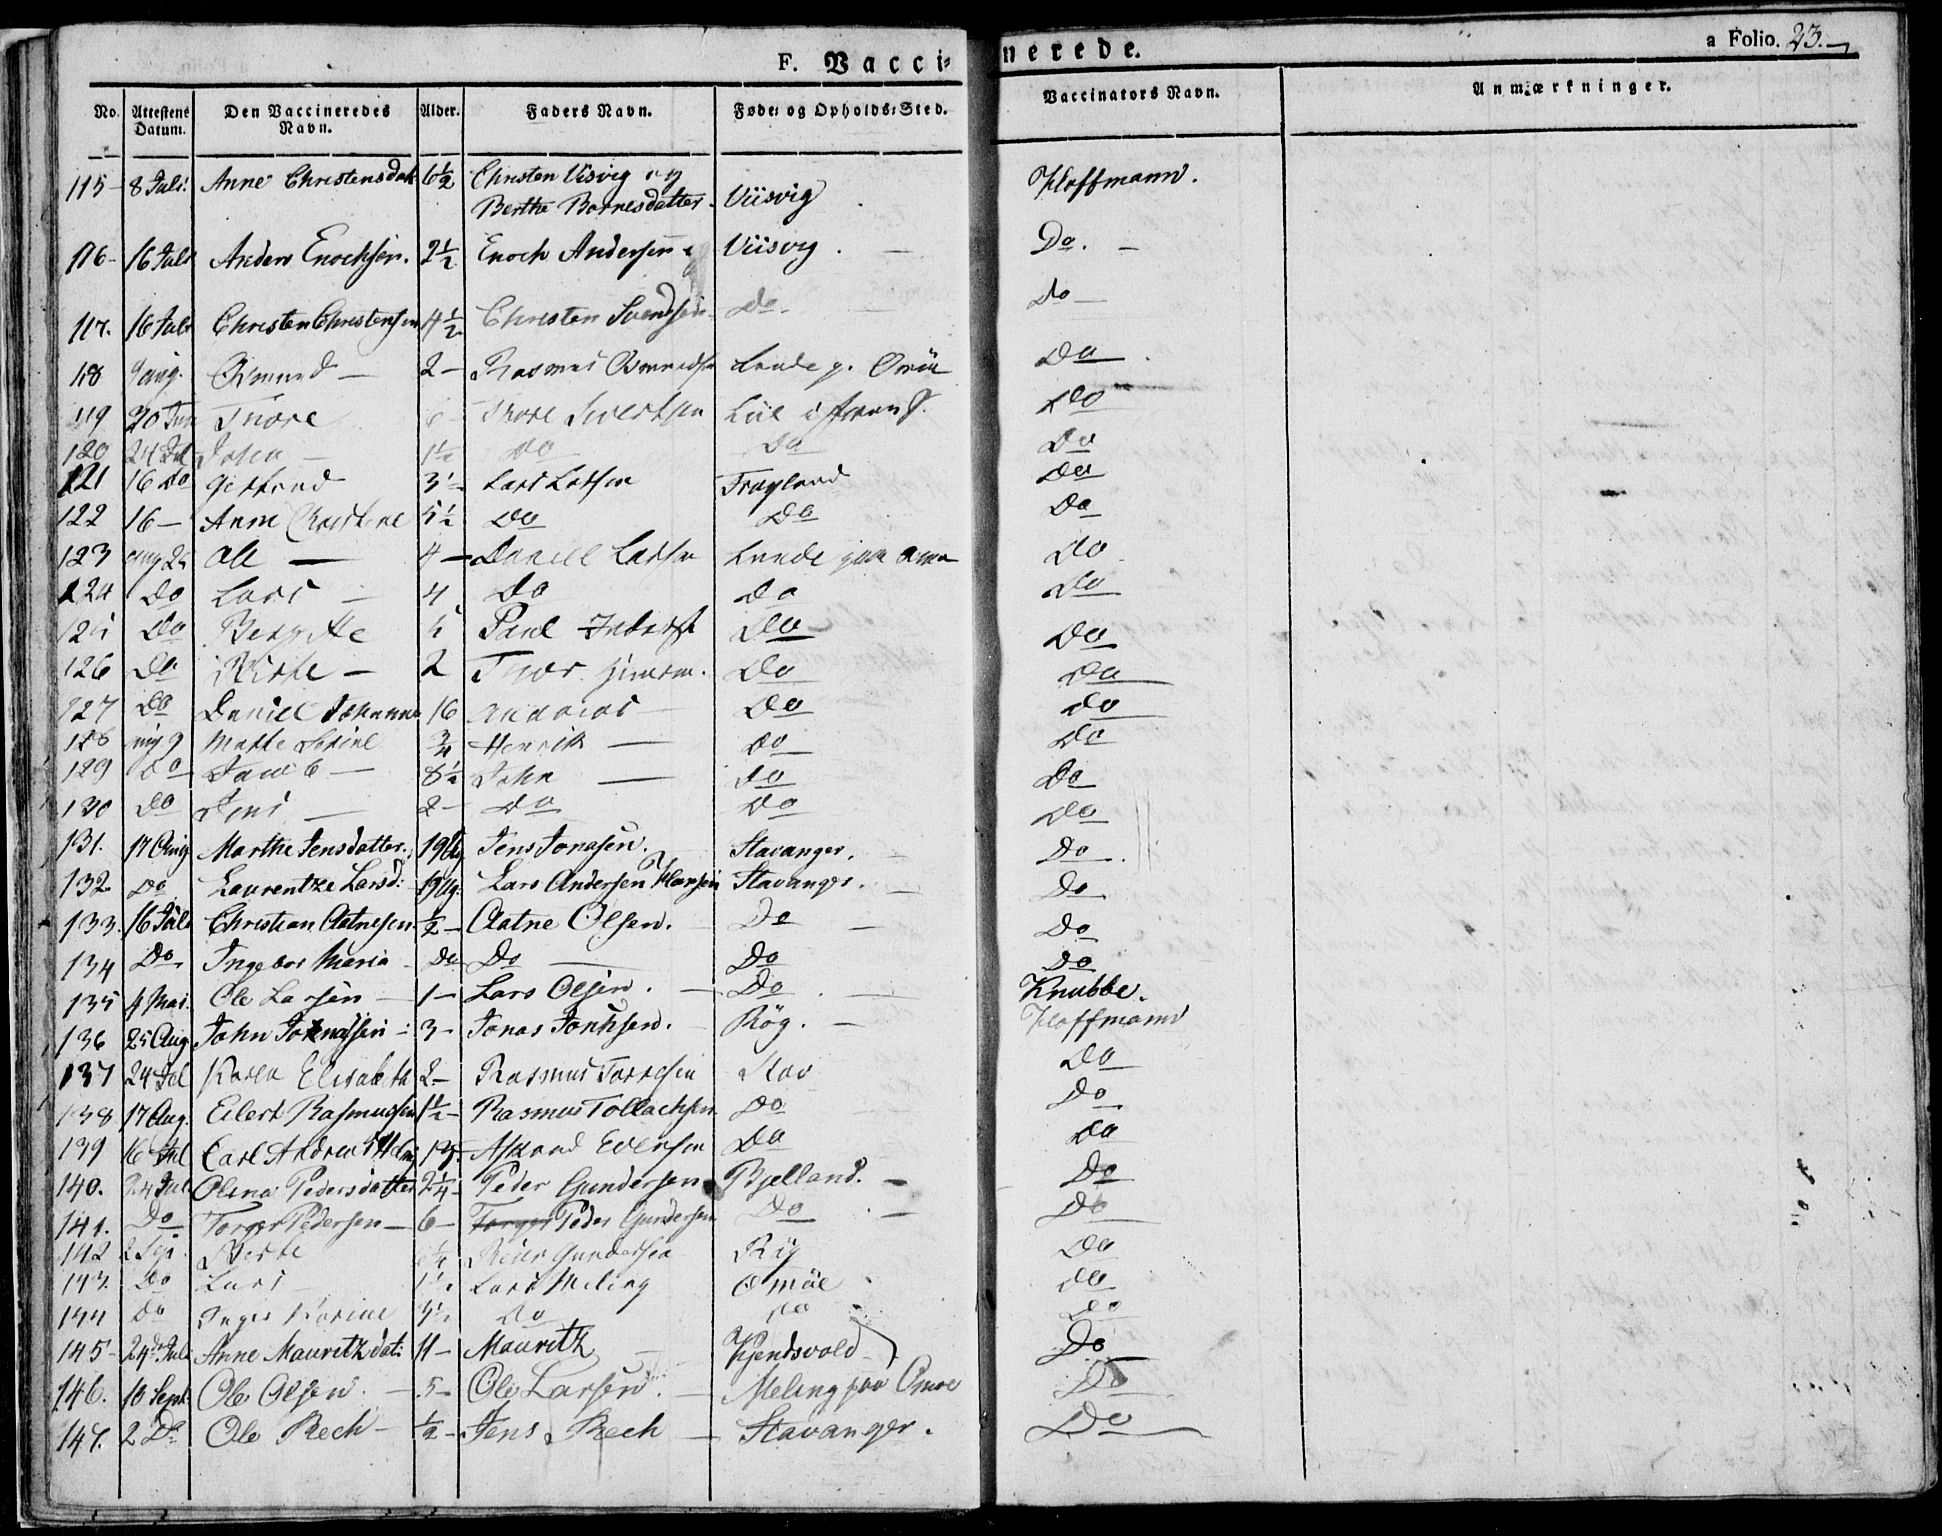 F. Vaccinerede. a Folio. 23.
No. Attestens Datum. Den Vaccineredes Navn. Alder. Faders Navn. Føde- og Opholds-Sted. Vaccinators Navn. Anmærkninger.
115 - 8 Juli. Anne Christensdatt 6½ Christen Viisvig og Berthe Baarnesdatter. Viisvig Hoffmann.
116 - 16 Juli Anders Enochsen. 2½ Enoch Andersen Viisvig. Do.
117. 16 Juli Christen Christensen 4½ Christen Svendsen Do. Do
118 9 aug. Osmund 2 - Rasmus Osmundsen Lunde p. Omöe Do
119 30 Jun Thore Thore Do
120 24 Jul Johan 1½ Do Do Do
121 16 Do Gertrud 3½ Lars Larsen Fragland Do
122 16 - Anne Christine 5½ Do Do Do
123 aug 25 Ole 4 - Daniel Larsen Lunde Do
124 Do Lars 4 Do Do Do
125 Do Bergitte 5 Paul Do Do
126 Do Berte - 2 Do Do
127 Do Daniel Johannes 16 Andreas Do Do
128 aug 9 Marte Serine ¾ Henrik Do Do
129 Do Jacob 8½ John Do Do
130 Do Jens 2 - Do Do Do
131. 17 Aug Marthe Jensdatter. 19 Ug Jens Jonasen. Stavanger. Do.
132 Do Laurentze Larsd: 19 Ug. Lars Andersen Hansen Stavanger. Do
133. 16 Juli Christian Aatnesen ½ - Aatne Olsen. Do Do
134 Do Ingebor Maria Do Do Do Do
135 4 Mai. Ole Larsen 1 - Lars Olsen. Do Knubbe.
136 25 Aug John Jonassen 3 - Jonas Johnsen. Rög. Hoffmann
137 24 Jul Karen Elisabeth 2 - Rasmus Torresen Stav Do
138 17 Aug. Eilert Rasmussen 1½ - Rasmus Tollachsen Do Do
139 16 Jul Carl Andreas Askoud Evensen Do Do
140. 24 Jul Olena Pedersdatter 2¼ - Peder Gundersen Bjelland. Do
141. Do Torger Pedersen - 6 - Torger Peder Gundersen Do Do
142 2 Sep. Berte Reier Gundersen Rög Do
143. Do Lars 1½ Lars Meling Omöe Do
144 Do Inger Karine 3½ Do Do Do
145 - 24de Juli Anne Mauritzdat: 11 - Mauritz Kjendsvold Do
146. 10 Sept. Ole Olsen. - 5 - Ole Larsen. Meling paa Omöe Do
147. 2 Do Ole Bech - ½ - Jens Bech Stavanger. Do